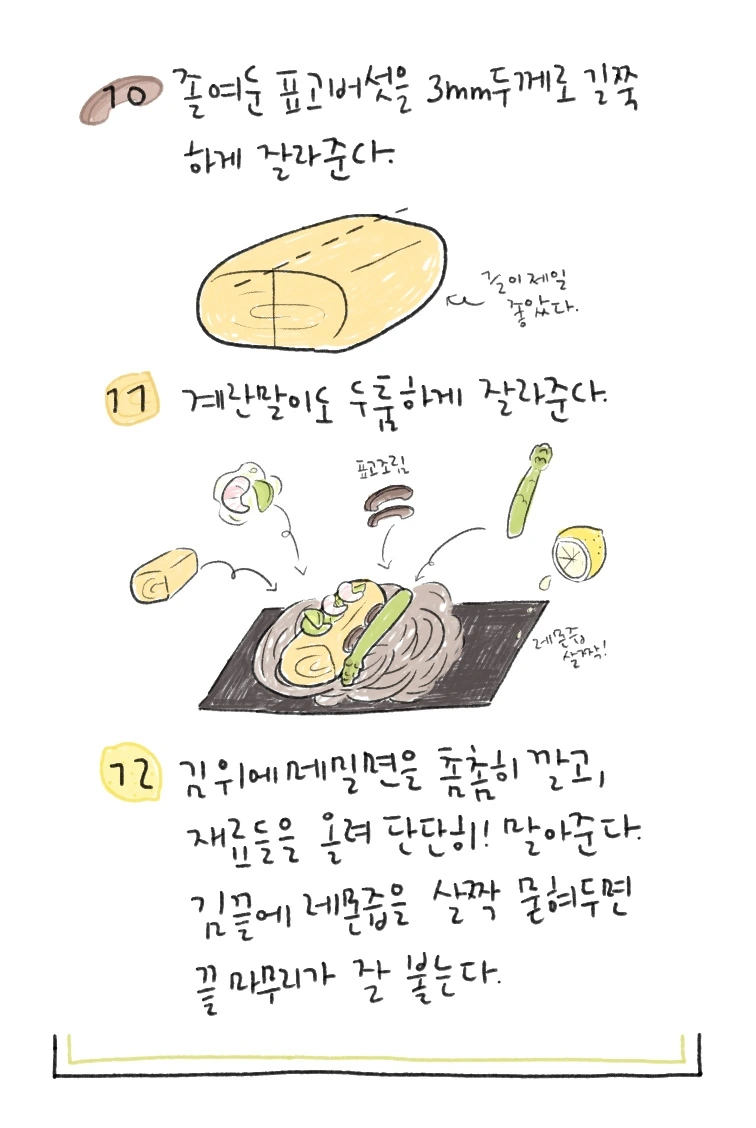 10 졸여둔 표고버섯을 3mm두께로 길쭉
하게 잘라준다.
길이제일
좋았다.
11 계란말이도 두툼하게 잘라준다.
표고조림
레몬즙
살짝!
12 김위에메밀면을 촘촘히 깔고,
재료들을 올려 단단히! 말아준다.
김끝에 레몬즙을 살짝 묻혀두면
끝마무리가 잘 붙는다.